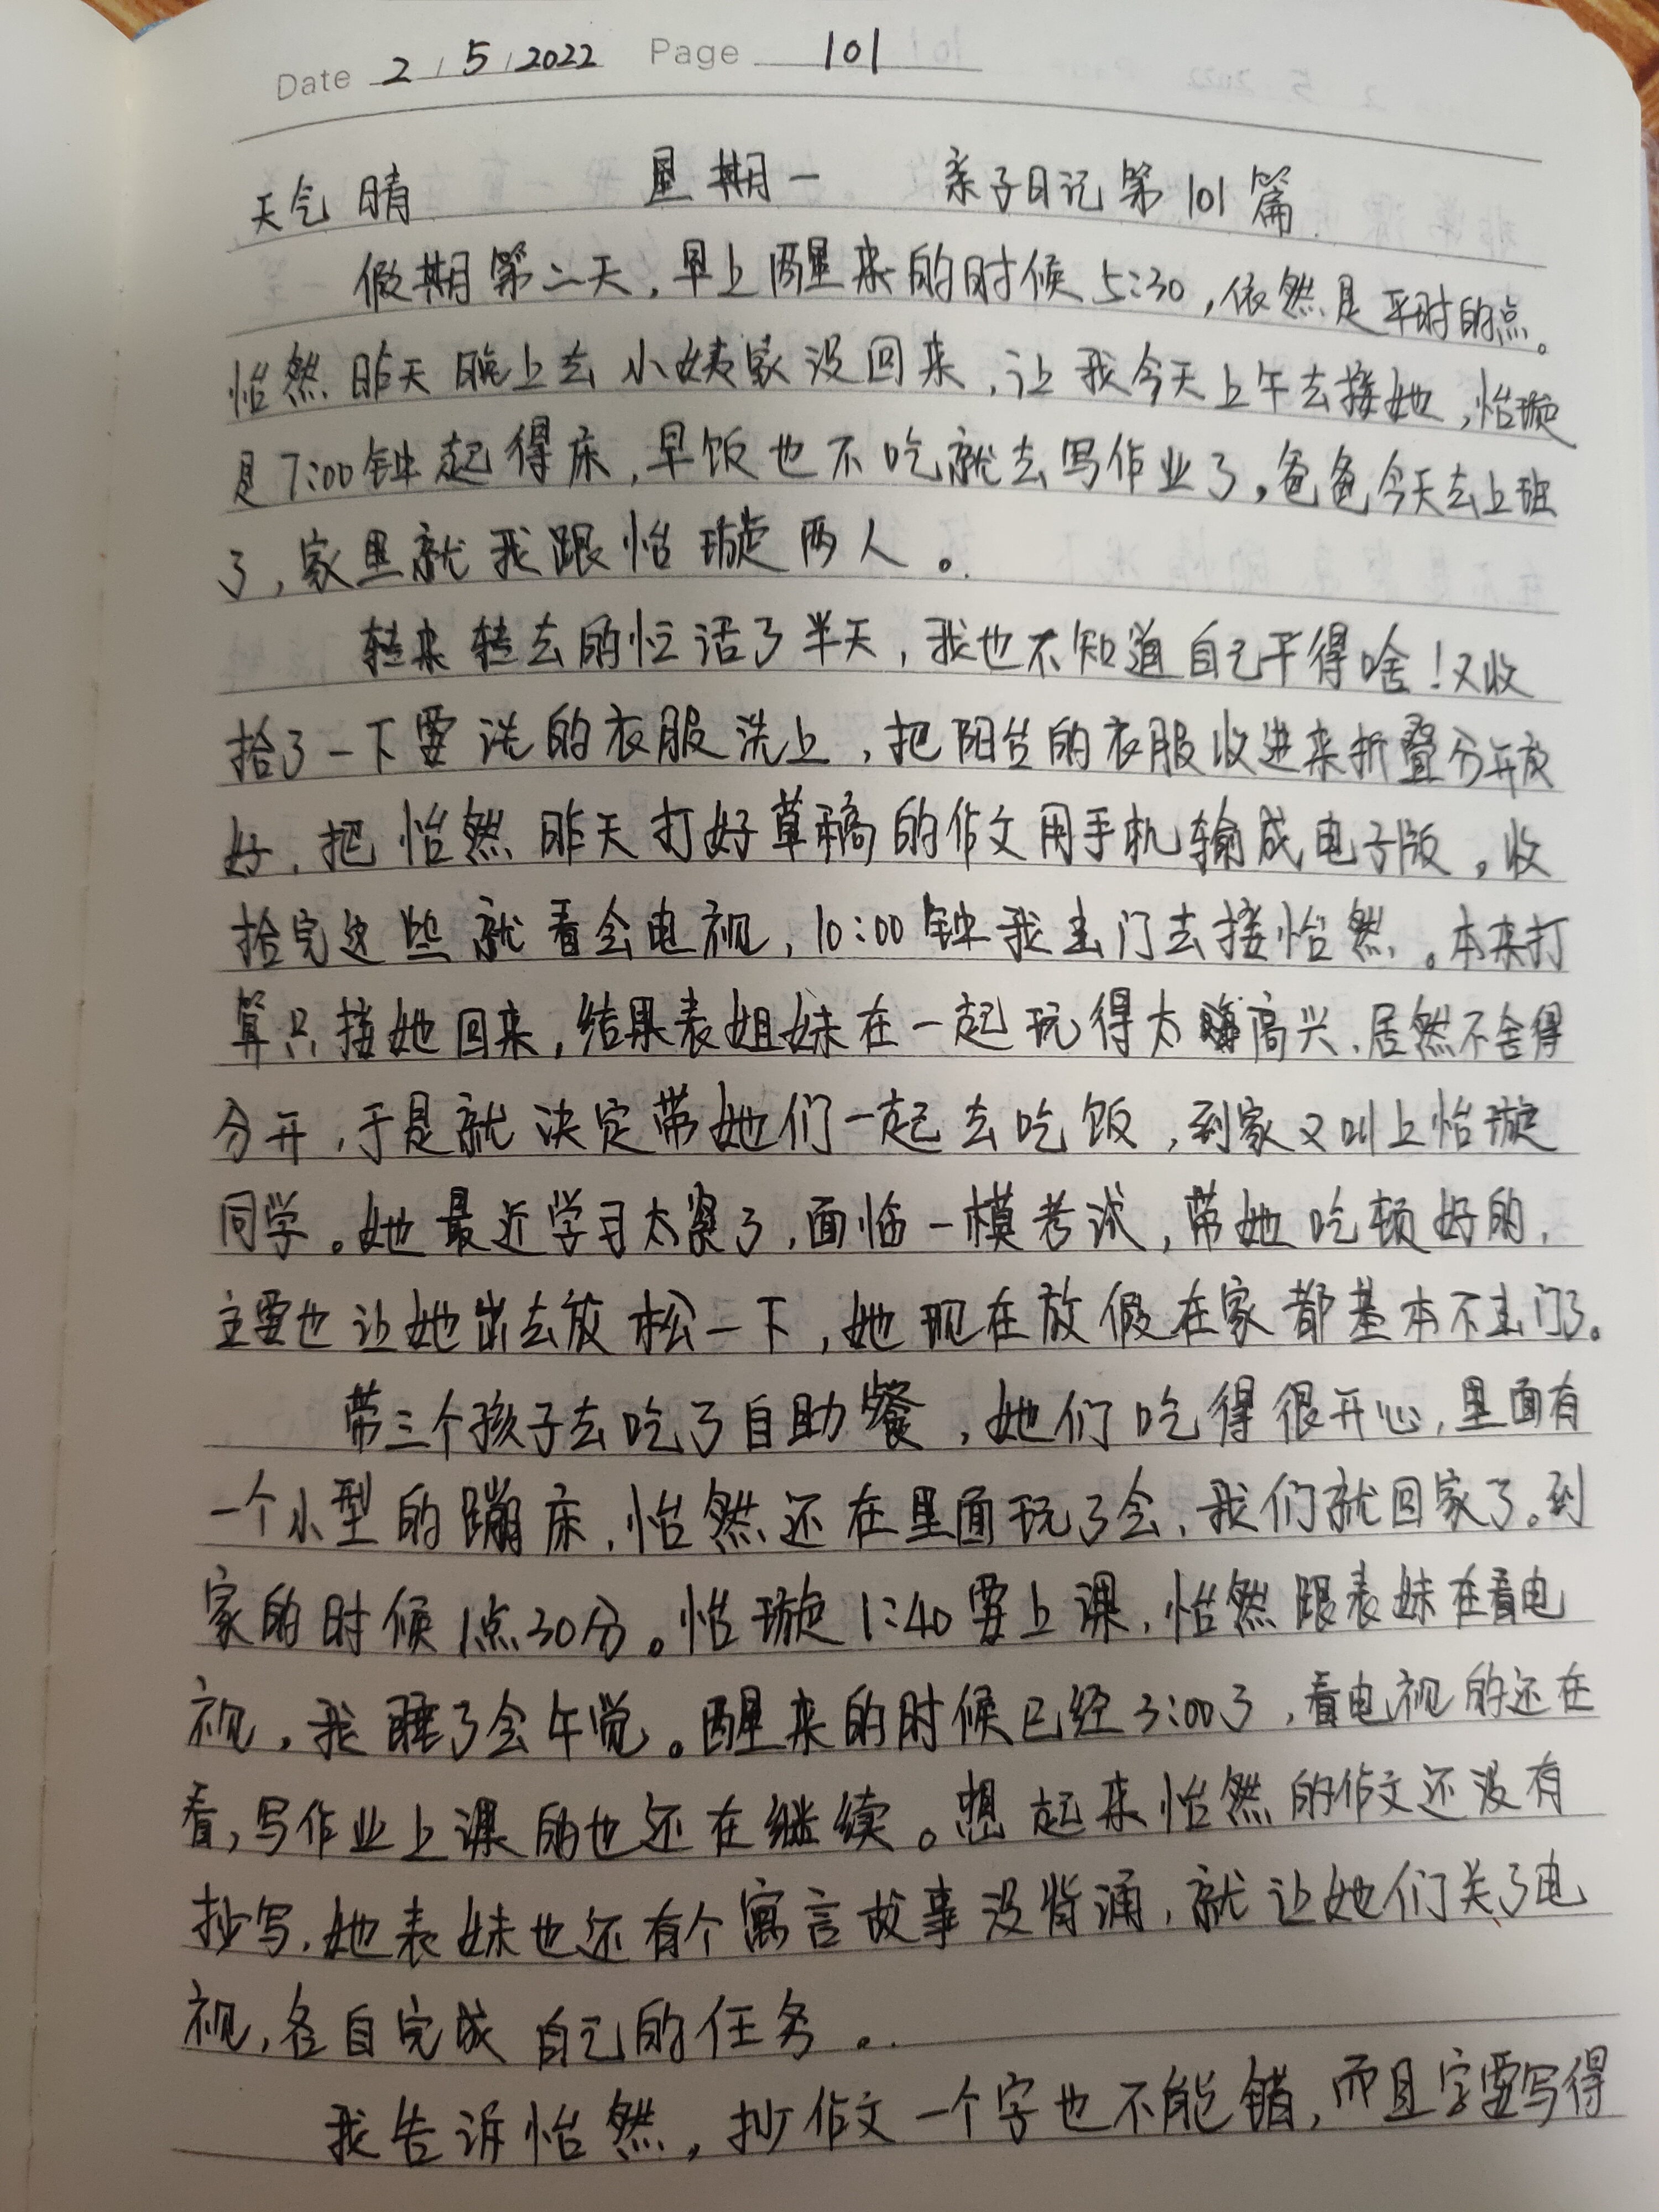 Date 2 / 5 / 2022 Page 101
天气晴 星期一 亲子日记第101篇
假期第二天,早上醒来的时候5:30,依然是平时的点。
怡然昨天晚上去小姨家没回来,让我今天上午去接她,怡璇
是7:00钟起得床,早饭也不吃就去写作业了,爸爸今天去上班
了,家里就我跟怡璇两人。
转来转去的忙活了半天,我也不知道自己干得啥!又收
拾了一下要洗的衣服洗上,把阳台的衣服收进来折叠分开放
好,把怡然昨天打好草稿的作文用手机输成电子版,收
拾完这些就看会电视,10:00钟我出门去接怡然。本来打
算只接她回来,结果表姐妹在一起玩得太高兴,居然不舍得
分开,于是就决定带她们一起去吃饭,到家又叫上怡璇
同学。她最近学习太紧了,面临一模考试,带她吃顿好的,
主要也让她出去放松一下,她现在放假在家都基本不出门了。
带三个孩子去吃了自助餐,她们吃得很开心,里面有
一个小型的蹦床,怡然还在里面玩了会,我们就回家了。到
家的时候1点30分。怡璇1:40要上课,怡然跟表妹在看电
视,我睡了会午觉。醒来的时候已经3:00了,看电视的还在
看,写作业上课的也还在继续。想起来怡然的作文还没有
抄写,她表妹也还有个寓言故事没背诵,就让她们关了电
视,各自完成自己的任务。
我告诉怡然,抄作文一个字也不能错,而且字要写得